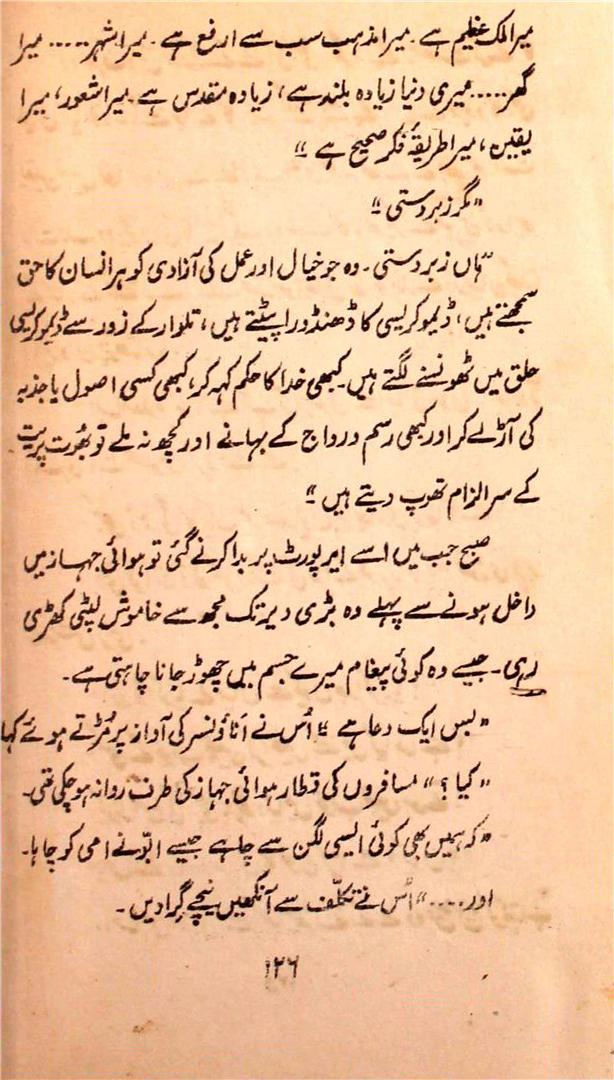 میرا ملک عظیم ہے۔ میرا مذہب سب سے ارفع ہے۔ میرا شہر ..... میرا
گھر ..... میری دنیا زیادہ بلند ہے، زیادہ مقدس ہے۔ میرا شعور، میرا
یقین، میرا طریقۂ فکر صحیح ہے "
" مگر زبردستی "
" ہاں زبردستی۔ وہ جو خیال اور عمل کی آزادی کو ہر انسان کا حق
سمجھتے ہیں، ڈیموکریسی کا ڈھنڈورا پیٹتے ہیں، تلوار کے زور سے ڈیموکریسی
حلق میں ٹھونسنے لگتے ہیں۔ کبھی خدا کا حکم کہہ کر، کبھی کسی اصول یا جذبہ
کی آڑ لے کر اور کبھی رسم و رواج کے بہانے اور کچھ نہ ملے تو بھوت پریت
کے سر الزام تھوپ دیتے ہیں "
صبح جب میں اسے ایرپورٹ پر بدا کرنے گئی تو ہوائی جہاز میں
داخل ہونے سے پہلے وہ بڑی دیر تک مجھ سے خاموش لپٹی کھڑی
رہی۔ جیسے وہ کوئی پیغام میرے جسم میں چھوڑ جانا چاہتی ہے۔
" بس ایک دعا ہے " اُس نے اناؤنسر کی آواز پر مُڑتے ہوئے کہا
" کیا ؟ " مسافروں کی قطار ہوائی جہاز کی طرف روانہ ہو چکی تھی۔
" کہ ہمیں بھی کوئی ایسی لگن سے چاہے جیسے ابّو نے امی کو چاہا۔
اور .... " اُس نے تکلّف سے آنکھیں نیچے گرا دیں۔
۱۲۶